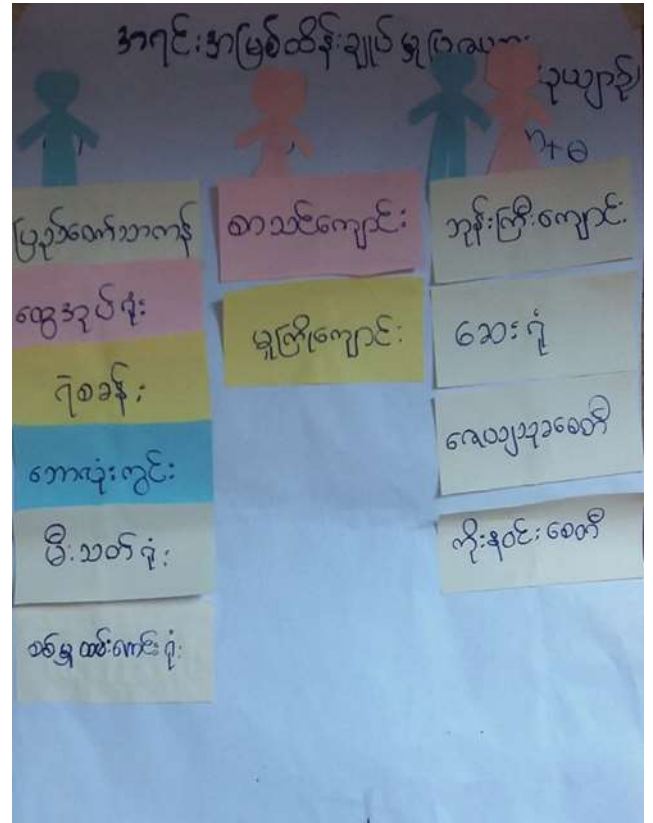 အရင်းအမြစ်ထိန်းချုပ်မှုပြဇယား
ဥယျာဉ်)
က + မ
ပြည်တော်သာကန်
ထွေအုပ်ရုံး
ရဲစခန်း
ဘောလုံးကွင်း
မီးသတ်ရုံး
စစ်မှုထမ်းဟောင်းရုံး
စာသင်ကျောင်း
မူကြိုကျောင်း
ဘုန်းကြီးကျောင်း
ဆေးရုံ
ဇေယျသုခစေတီ
ကိုးနဝင်းစေတီ